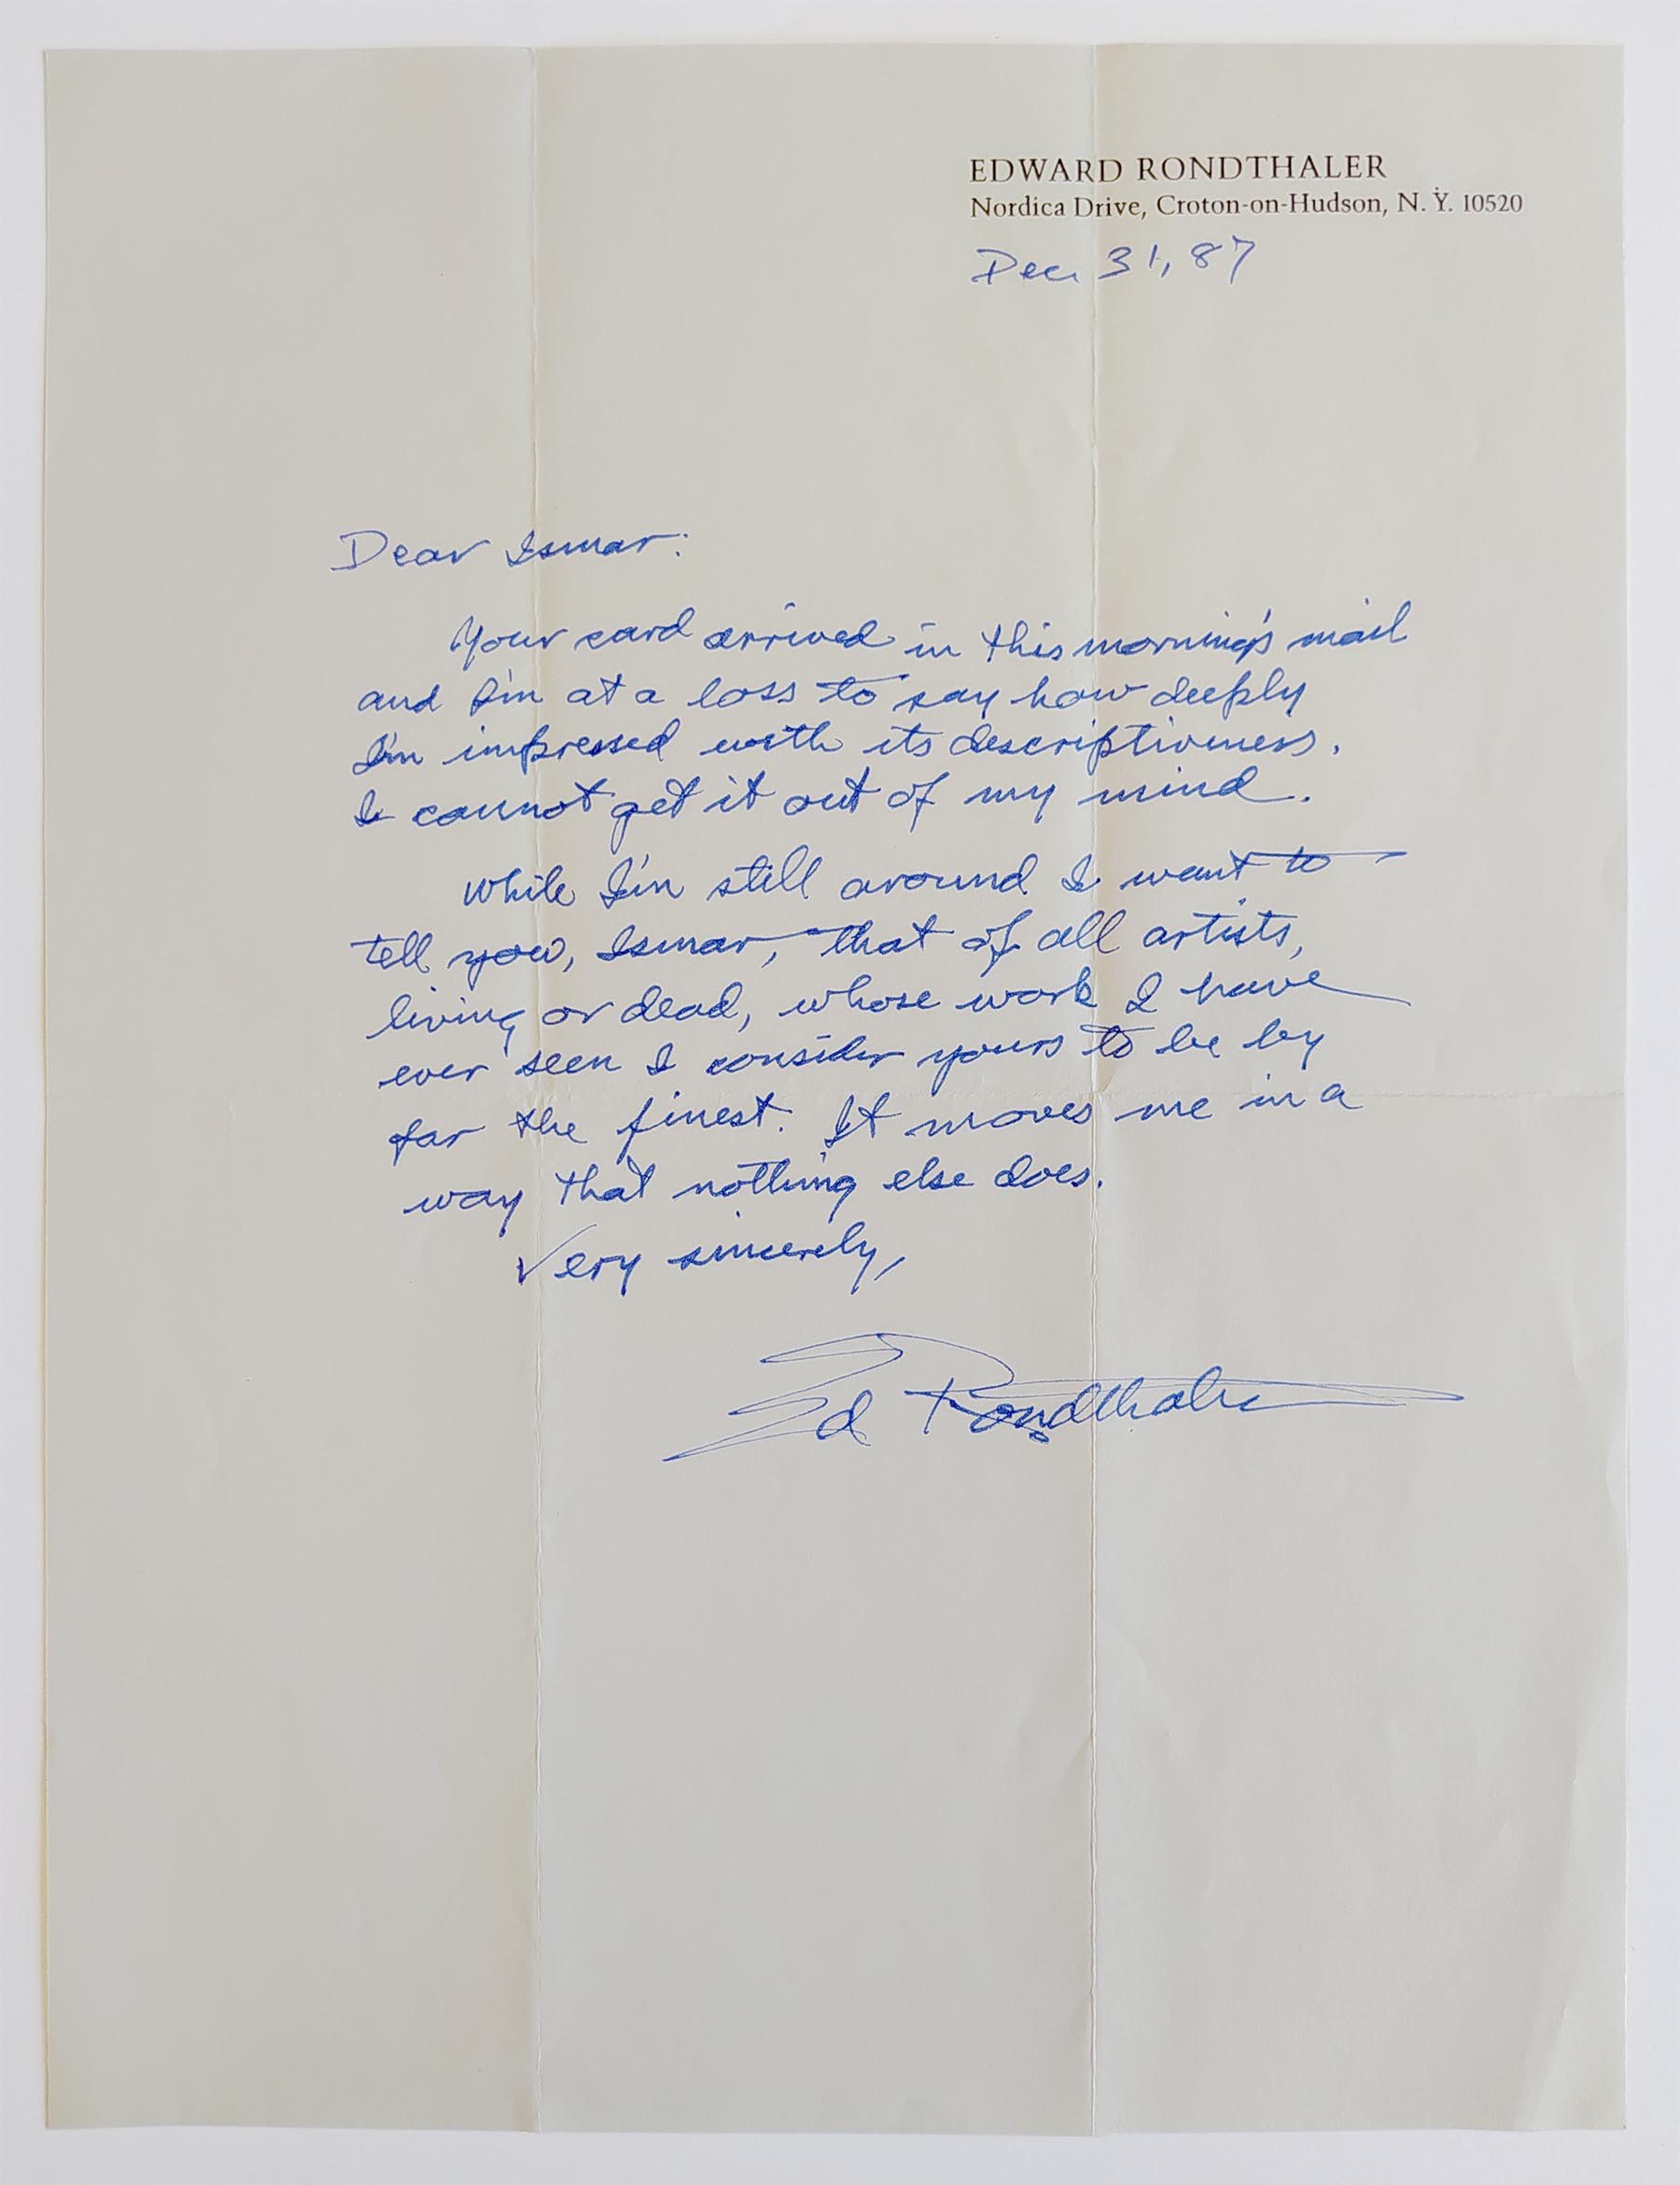 EDWARD RONDTHALER
Nordica Drive, Croton-on-Hudson, N. Y. 10520
Dec. 31, 87
Dear Ismar:
Your card arrived in this morning's mail
and I'm at a loss to say how deeply
I'm impressed with its descriptiveness.
I cannot get it out of my mind.
While I'm still around I want to
tell you, Ismar, that of all artists,
living or dead, whose work I have
ever seen I consider yours to be by
far the finest. It moves me in a
way that nothing else does.
Very sincerely,
Ed Rondthaler